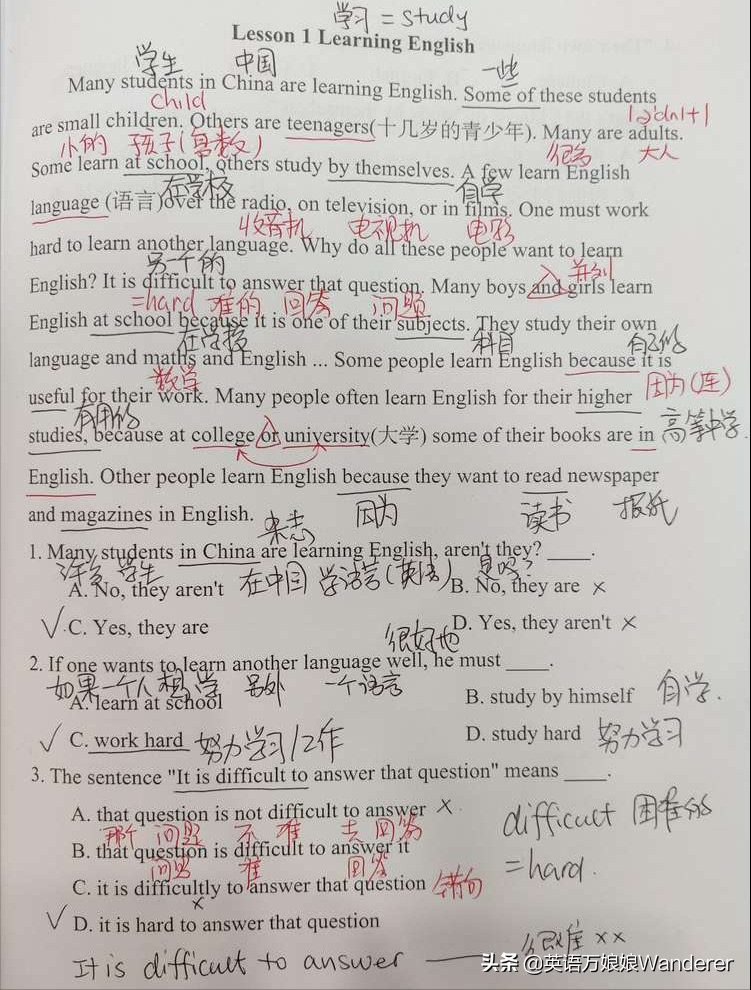 学习 = study
Lesson 1 Learning English
学生 中国 一些
Many students in China are learning English. Some of these students
child
are small children. Others are teenagers(十几岁的青少年). Many are adults.
小的 孩子(复数) 很多 大人
Some learn at school, others study by themselves. A few learn English
在学校 自学
language (语言)over the radio, on television, or in films. One must work
收音机 电视机 电影
hard to learn another language. Why do all these people want to learn
另一个的
English? It is difficult to answer that question. Many boys and girls learn
并列
=hard 难的 回答 问题
English at school because it is one of their subjects. They study their own
在学校 科目 自己的
language and maths and English ... Some people learn English because it is
数学
useful for their work. Many people often learn English for their higher
因为(连)
有用的
studies, because at college or university(大学) some of their books are in
高等中学.
English. Other people learn English because they want to read newspaper
and magazines in English.
杂志 因为 读书 报纸
1. Many students in China are learning English, aren't they? ____.
许多 学生 在中国 学语言(英语) 是吗?
A. No, they aren't B. No, they are ×
√ C. Yes, they are D. Yes, they aren't ×
很好地
2. If one wants to learn another language well, he must ____.
如果一个人想学 另外 一个语言
A. learn at school B. study by himself 自学.
√ C. work hard 努力学习/工作 D. study hard 努力学习
3. The sentence "It is difficult to answer that question" means ____.
A. that question is not difficult to answer ×
那个 问题 不 难 去 回答
B. that question is difficult to answer it
问题 难 回答
C. it is difficultly to answer that question 错句
×
√ D. it is hard to answer that question
difficult 困难的
=hard.
It is difficult to answer 很难 ××
头条 @英语万娘娘Wanderer